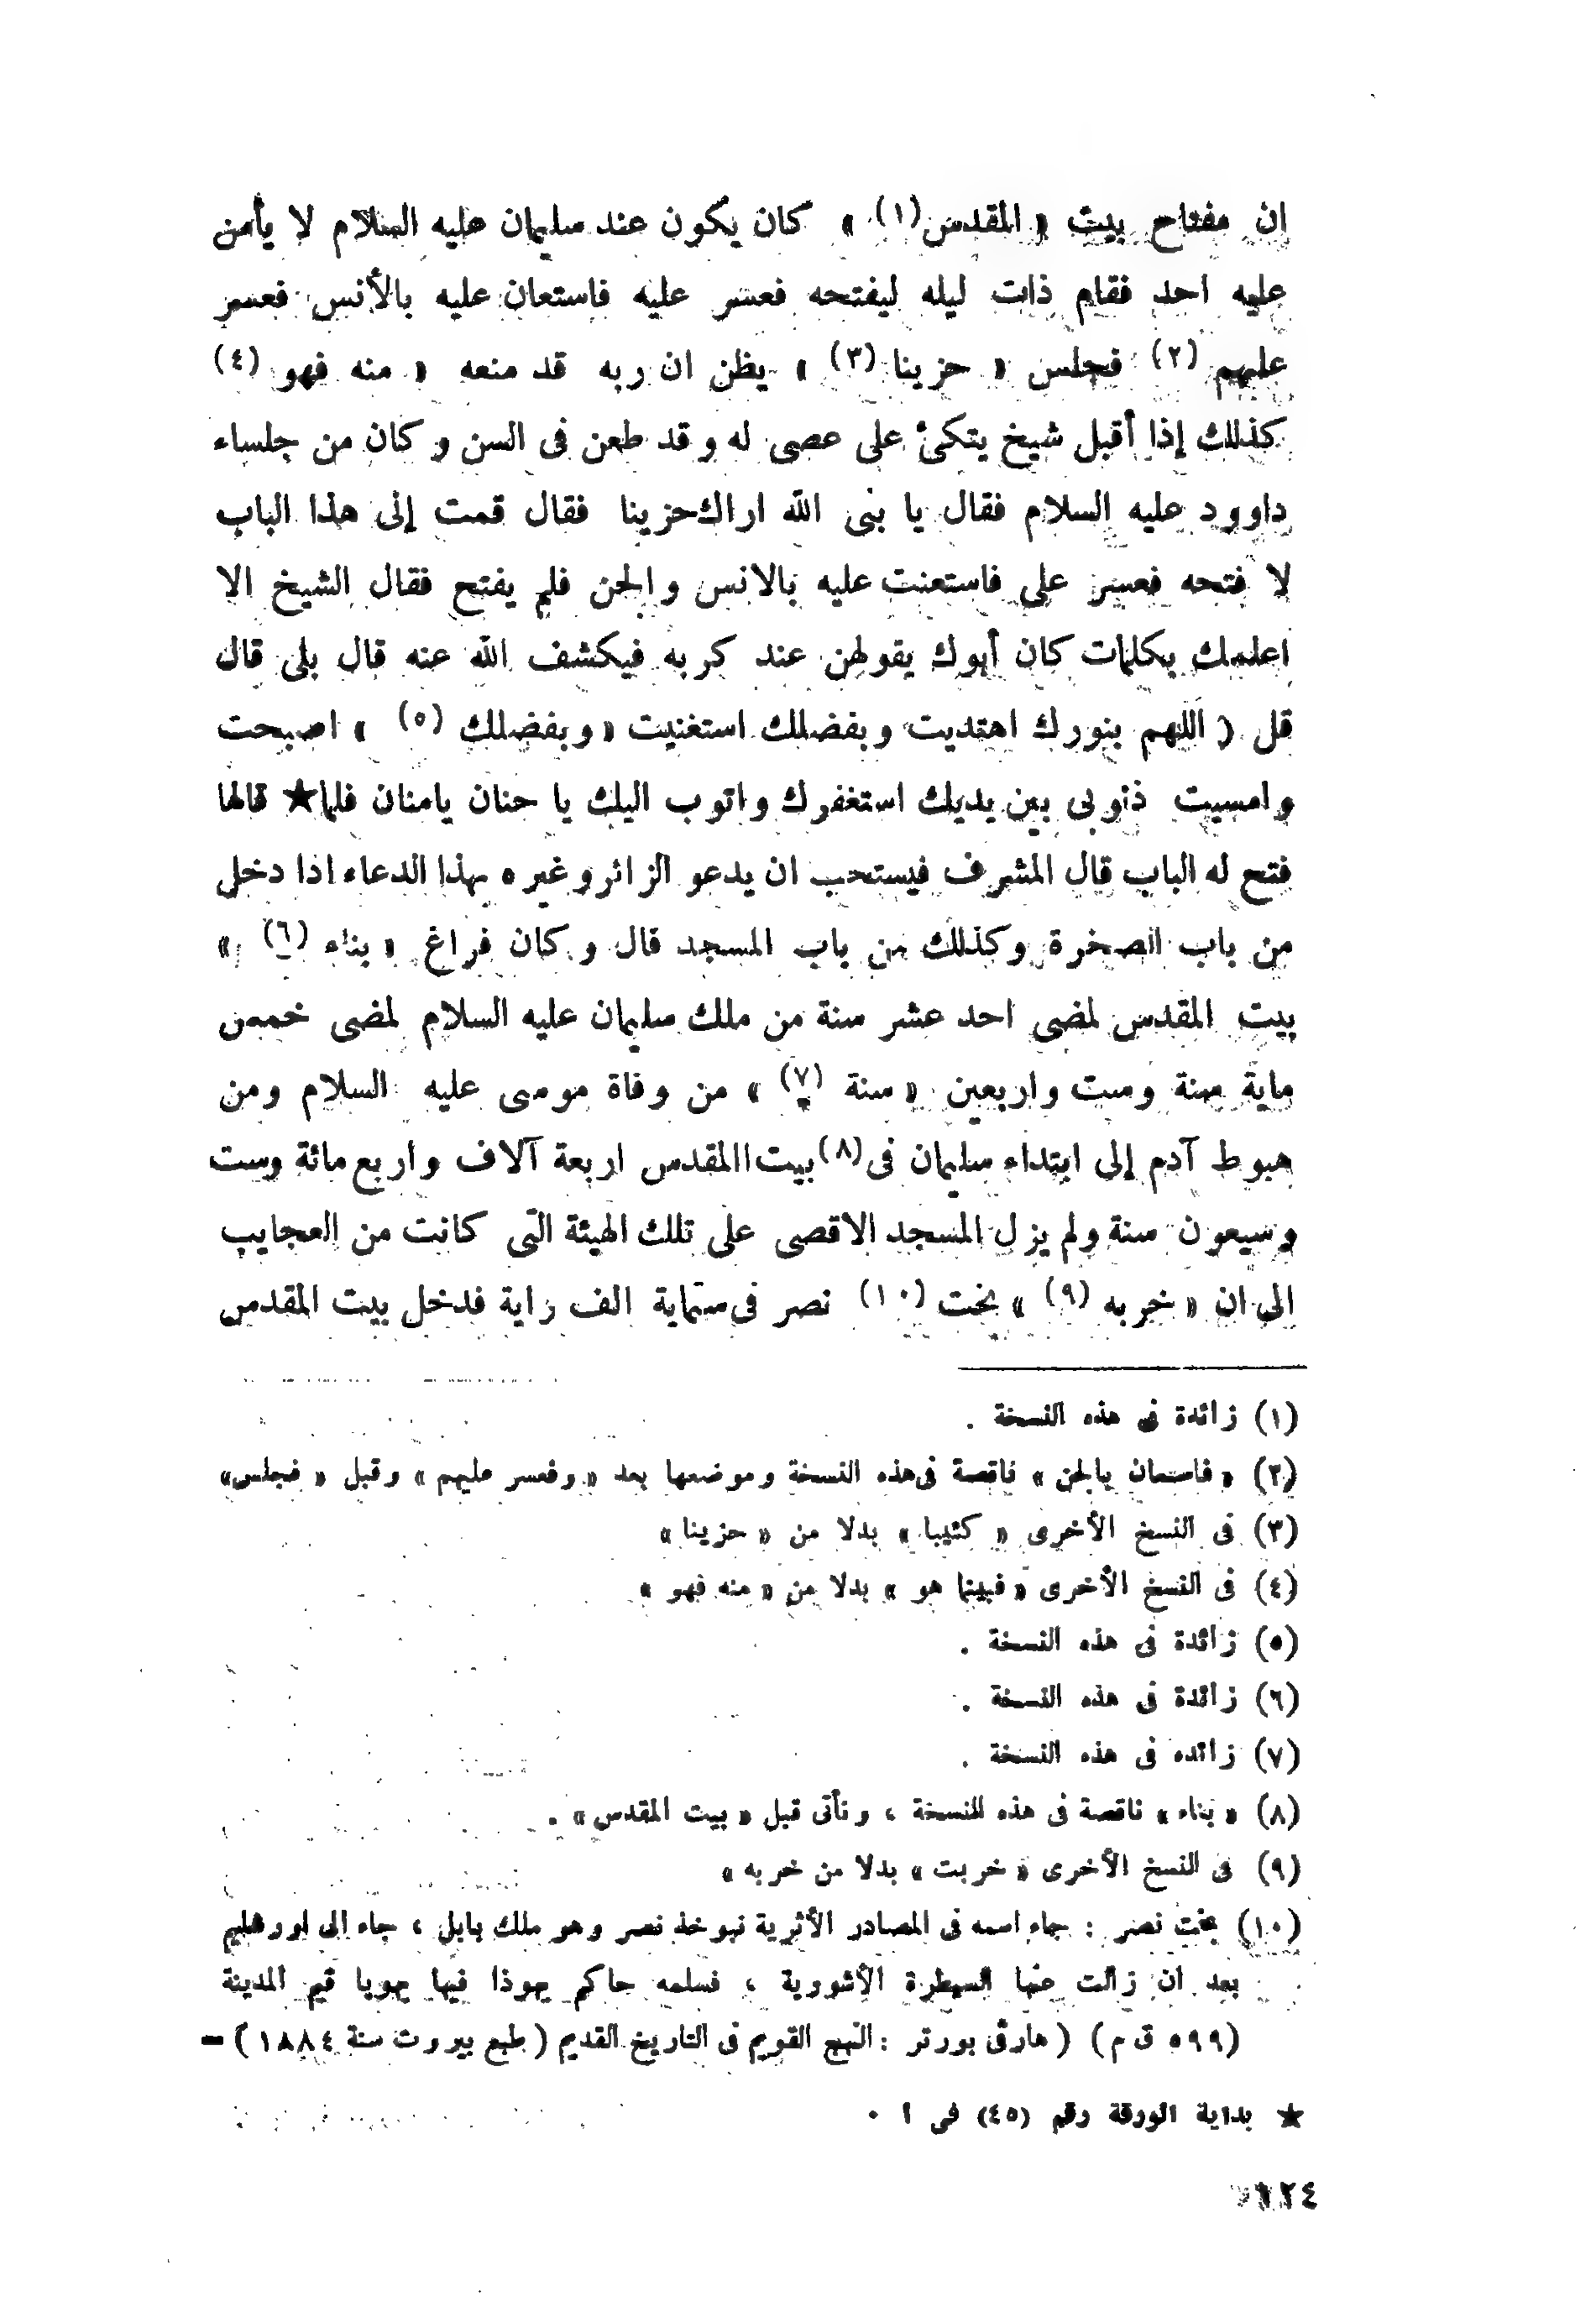 ان مفتاح بيت « المقدس (١) » كان يكون عند سليمان عليه السلام لا يأمن
عليه احد فقام ذات ليله ليفتحه فعسر عليه فاستعان عليه بالأنس فعسر
عليهم (٢) فجلس « حزينا (٣) » يظن ان ربه قد منعه « منه فهو (٤)
كذلك إذا أقبل شيخ يتكئ على عصى له وقد طعن فى السن وكان من جلساء
داوود عليه السلام فقال يا بنى الله اراك حزينا فقال قمت إلى هذا الباب
لا فتحه فعسر على فاستعنت عليه بالانس والجن فلم يفتح فقال الشيخ الا
اعلمك بكلمات كان أبوك يقولهن عند كربه فيكشف الله عنه قال بلى قال
قل ( اللهم بنورك اهتديت وبفضلك استغنيت « وبفضلك (٥) » اصبحت
وامسيت ذنوبى بين يديك استغفرك واتوب اليك يا حنان يامنان فلما★ قالها
فتح له الباب قال المشرف فيستحب ان يدعو الزائر وغيره بهذا الدعاء اذا دخل
من باب الصخرة وكذلك من باب المسجد قال وكان فراغ « بناء (٦) »
بيت المقدس لمضى احد عشر سنة من ملك سليمان عليه السلام لمضى خمس
ماية سنة وست واربعين « سنة (٧) » من وفاة موسى عليه السلام ومن
هبوط آدم إلى ابتداء سليمان فى (٨) بيت االمقدس اربعة آلاف واربع مائة وست
وسيعون سنة ولم يزل المسجد الاقصى على تلك الهيئة التى كانت من العجايب
الى ان « خربه (٩) » بخت (١٠) نصر فى ستماية الف راية فدخل بيت المقدس
(١) زائدة فى هذه النسخة .
(٢) « فاستعان بالجن » ناقصة فى هذه النسخة وموضعها بعد « وفعسر عليهم » وقبل « فجلس»
(٣) فى النسخ الأخرى « كئيبا » بدلا من « حزينا »
(٤) فى النسخ الأخرى « فبينما هو » بدلا من « منه فهو »
(٥) زائدة فى هذه النسخة .
(٦) زائدة فى هذه النسخة .
(٧) زائده فى هذه النسخة .
(٨) « بناء » ناقصة فى هذه النسخة ، وتأتى قبل « بيت المقدس» .
(٩) فى النسخ الأخرى « خربت » بدلا من خربه »
(١٠) بخت نصر : جاء اسمه فى المصادر الأثرية نبوخذ نصر وهو ملك بابل ، جاء الى اورهليم
بعد ان زالت عنها السيطرة الأشورية ، فسلمه حاكم يهوذا فيها يهويا قيم المدينة
(٥٩٩ ق م) ( هارفى بورتر : النهج القويم فى التاريخ القديم ( طبع بيروت سنة ١٨٨٤ ) –
★ بداية الورقة رقم (٤٥) فى ا .
١٢٤